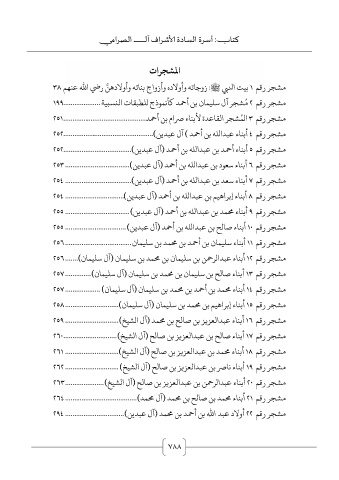 كتاب: أسرة السادة الأشراف آل الصرامي
المشجرات
مشجر رقم ١ بيت النبي ﷺ: زوجاته وأولاده وأزواج بناته وأولادهنَّ رضي الله عنهم ٣٨
مشجر رقم ٢ مُشجر آل سليمان بن أحمد كأنموذج للطبقات النسبية ................... ١٩٩
مشجر رقم ٣ المُشجر القاعدة لأبناء صرام بن أحمد ................... ٢٥١
مشجر رقم ٤ أبناء عبدالله بن أحمد ( آل عبدين) ................... ٢٥٢
مشجر رقم ٥ أبناء أحمد بن عبدالله بن أحمد (آل عبدين) ................... ٢٥٢
مشجر رقم ٦ أبناء سعود بن عبدالله بن أحمد (آل عبدين) ................... ٢٥٣
مشجر رقم ٧ أبناء سعد بن عبدالله بن أحمد (آل عبدين) ................... ٢٥٤
مشجر رقم ٨ أبناء إبراهيم بن عبدالله بن أحمد (آل عبدين) ................... ٢٥٤
مشجر رقم ٩ أبناء محمد بن عبدالله بن أحمد (آل عبدين) ................... ٢٥٥
مشجر رقم ١٠ أبناء صالح بن عبدالله بن أحمد (آل عبدين) ................... ٢٥٥
مشجر رقم ١١ أبناء سليمان بن أحمد بن محمد بن سليمان ................... ٢٥٦
مشجر رقم ١٢ أبناء عبدالرحمن بن سليمان بن محمد بن سليمان (آل سليمان) ...... ٢٥٦
مشجر رقم ١٣ أبناء صالح بن سليمان بن محمد بن سليمان (آل سليمان) ............ ٢٥٧
مشجر رقم ١٤ أبناء محمد بن أحمد بن محمد بن سليمان (آل سليمان) ............ ٢٥٧
مشجر رقم ١٥ أبناء إبراهيم بن محمد بن سليمان (آل سليمان) ................... ٢٥٨
مشجر رقم ١٦ أبناء عبدالعزيز بن صالح بن محمد (آل الشيخ) ................... ٢٥٩
مشجر رقم ١٧ أبناء صالح بن عبدالعزيز بن صالح (آل الشيخ) ................... ٢٦٠
مشجر رقم ١٨ أبناء محمد بن عبدالعزيز بن صالح (آل الشيخ) ................... ٢٦١
مشجر رقم ١٩ أبناء ناصر بن عبدالعزيز بن صالح (آل الشيخ) ................... ٢٦٢
مشجر رقم ٢٠ أبناء عبدالرحمن بن عبدالعزيز بن صالح (آل الشيخ) ................... ٢٦٣
مشجر رقم ٢١ أبناء محمد بن صالح بن محمد (آل محمد) ................... ٢٦٤
مشجر رقم ٢٢ أولاد عبد الله بن أحمد بن محمد (آل عبدين) ................... ٢٩٤
٧٨٨